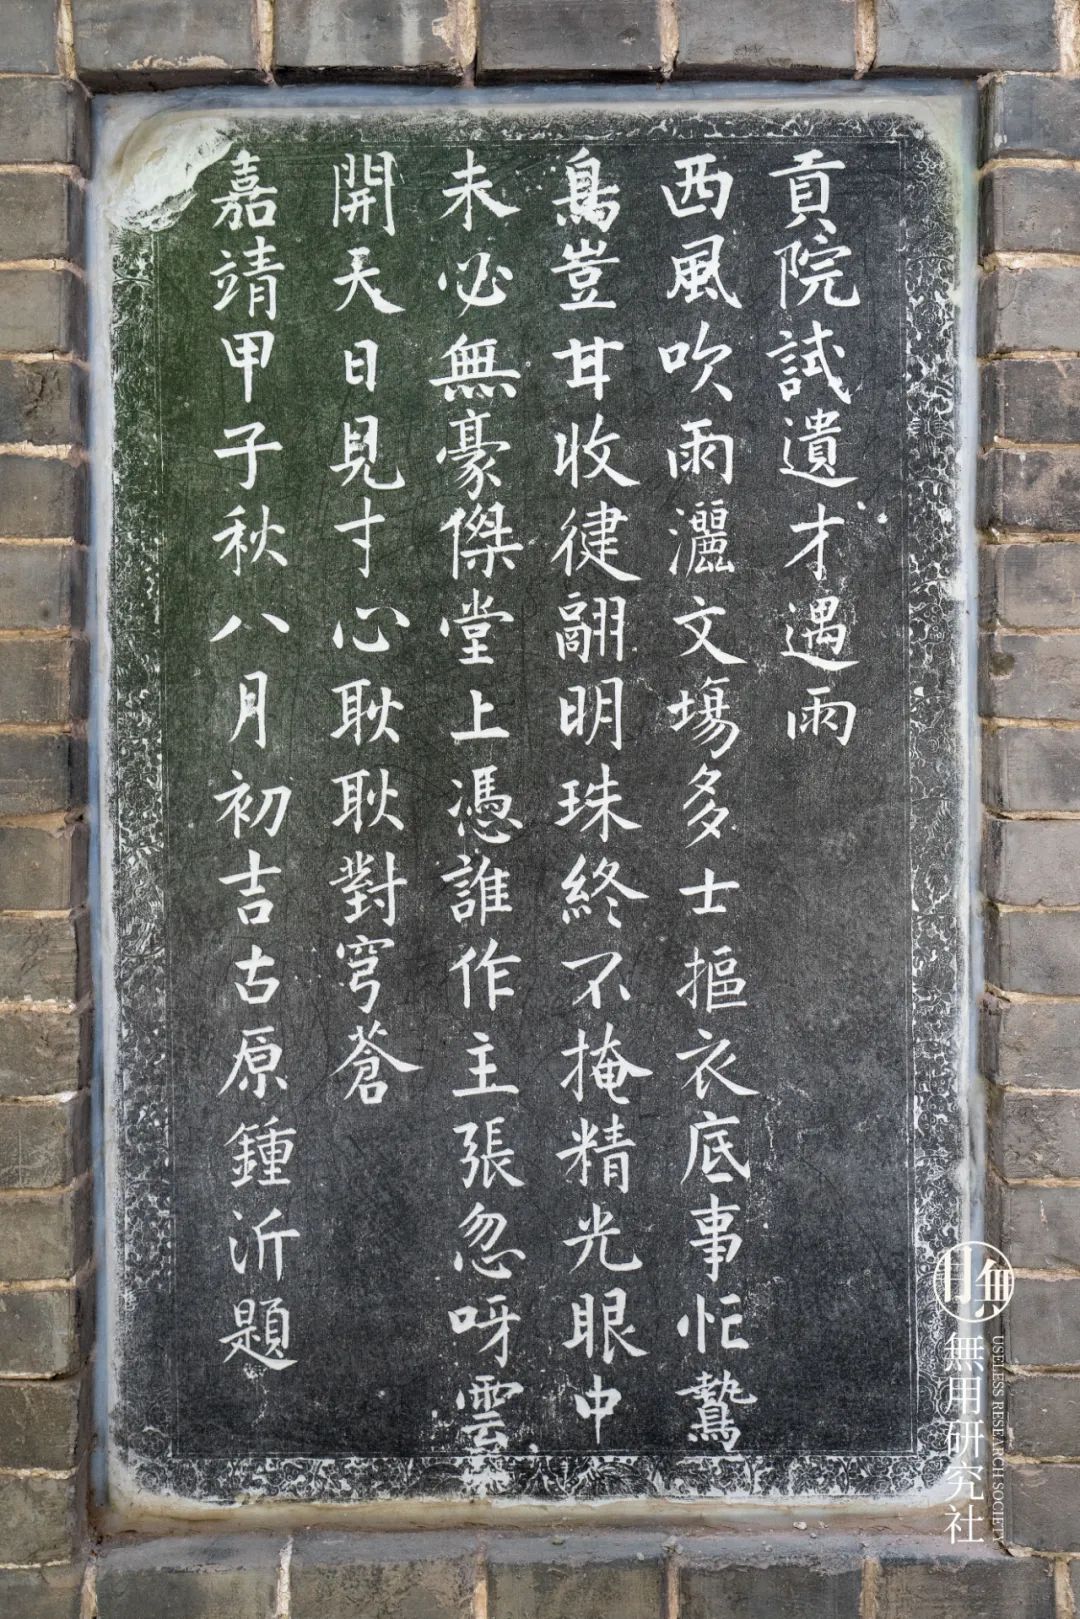 貢院試遺才遇雨
西風吹雨灑文場多士摳衣底事忙鷙
鳥豈甘收健翮明珠終不掩精光眼中
未必無豪傑堂上憑誰作主張忽呀雲
開天日見寸心耿耿對穹蒼
嘉靖甲子秋八月初吉古原鍾沂題
無用研究社
USELESS RESEARCH SOCIETY